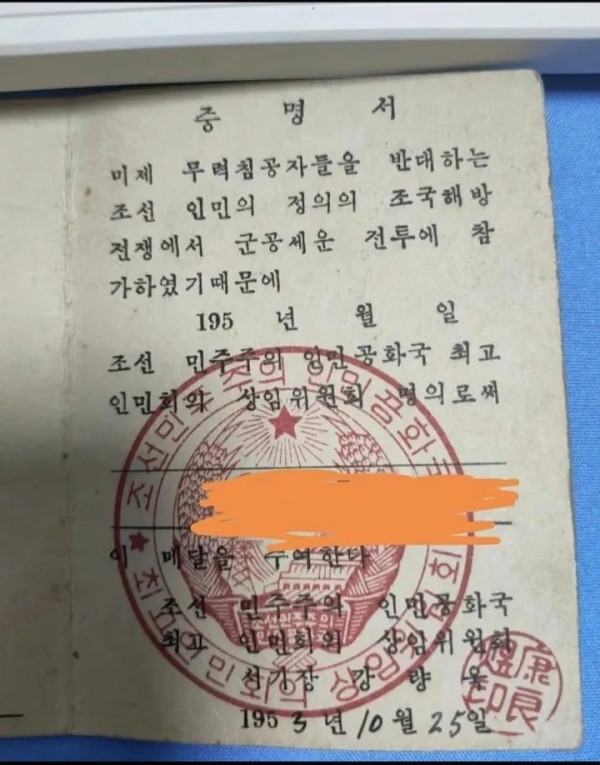 증 명 서
미제 무력침공자들을 반대하는
조선 인민의 정의의 조국해방
전쟁에서 군공세운 전투에 참
가하였기때문에
195 년 월 일
조선 민주주의 인민공화국 최고
인민회의 상임위원회 명의로써
이 메달을 수여한다
조선 민주주의 인민공화국
최고 인민회의 상임위원회
서기장 강 량 욱
1953년 10월 25일
조선민주주의인민공화국 최고인민회의 상임위원회